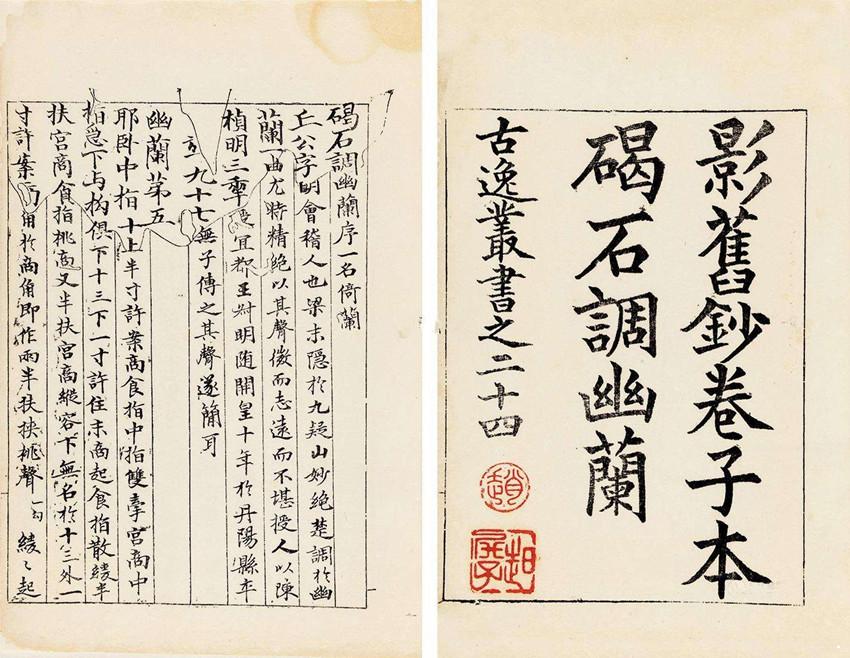 影舊鈔卷子本
碣石調幽蘭
古逸叢書之二十四
趙
碣石調幽蘭序一名倚蘭
丘公字明會稽人也梁末隱於九疑山妙絕楚調於幽
蘭一曲尤特精絕以其聲微而志遠而不堪授人以陳
楨明三年授宜都王叔明隨開皇十年於丹陽縣卒
九十七無子傳之其聲遂簡耳
幽蘭第五
耶臥中指十上半寸許案商食指中指雙牽宮商中
指急下与拘俱下十三下一寸許住末商起食指散緩半
扶宮商食指挑商又半扶宮商縱容下無名於十三外一
寸許案商角於商角即作兩半扶挾挑聲一句 緩〻起